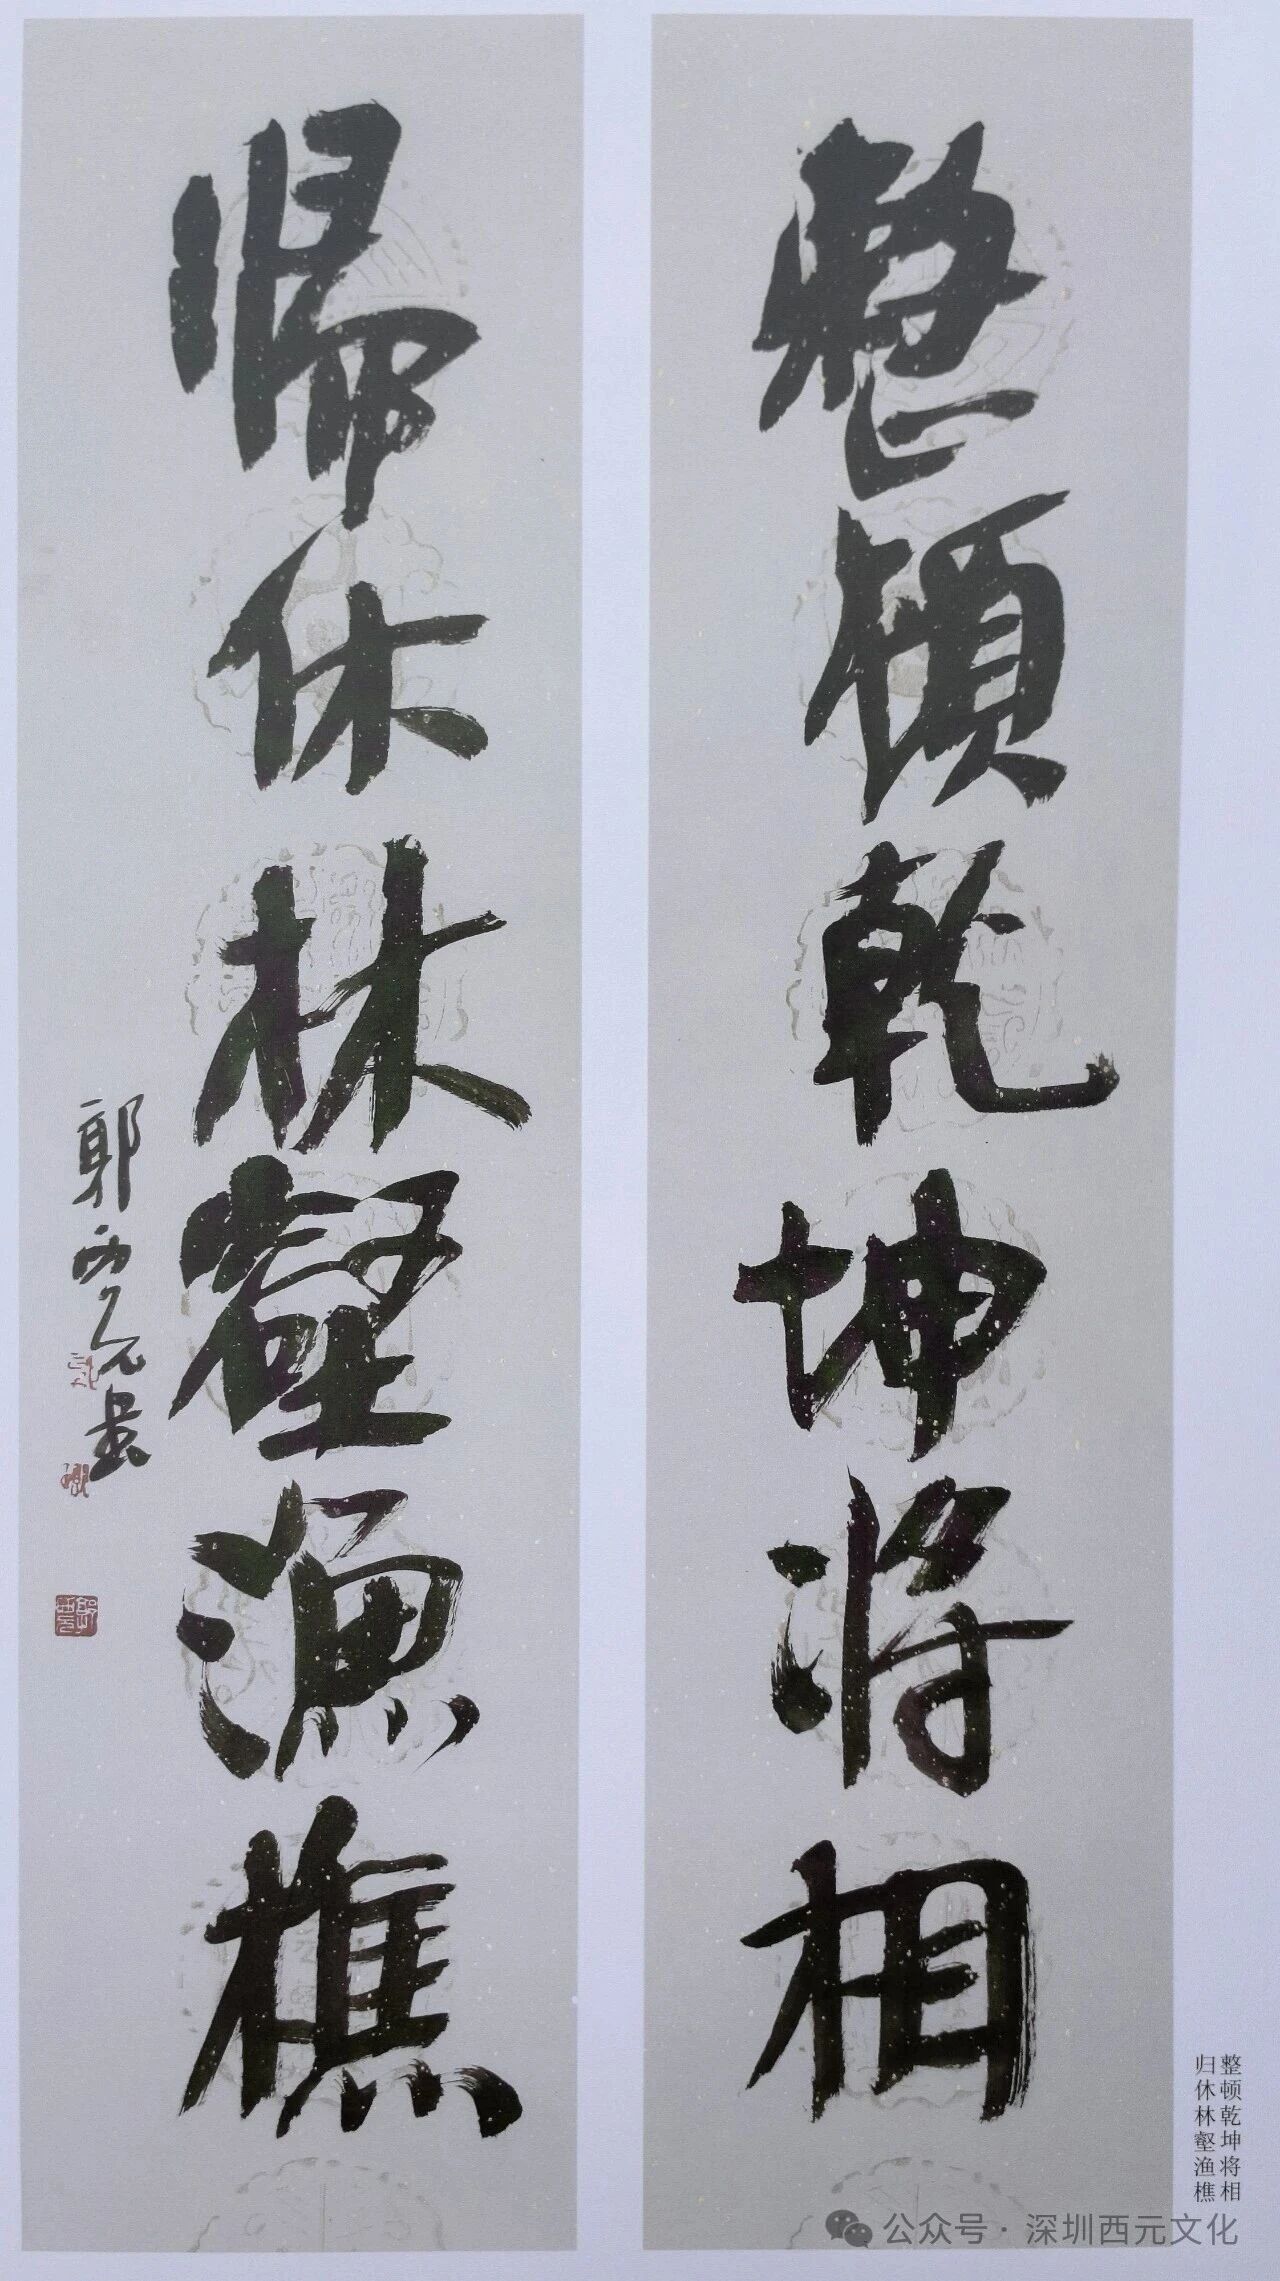 整頓乾坤将相
歸休林壑漁樵
郭西元书
整顿乾坤将相
归休林壑渔樵
公众号·深圳西元文化